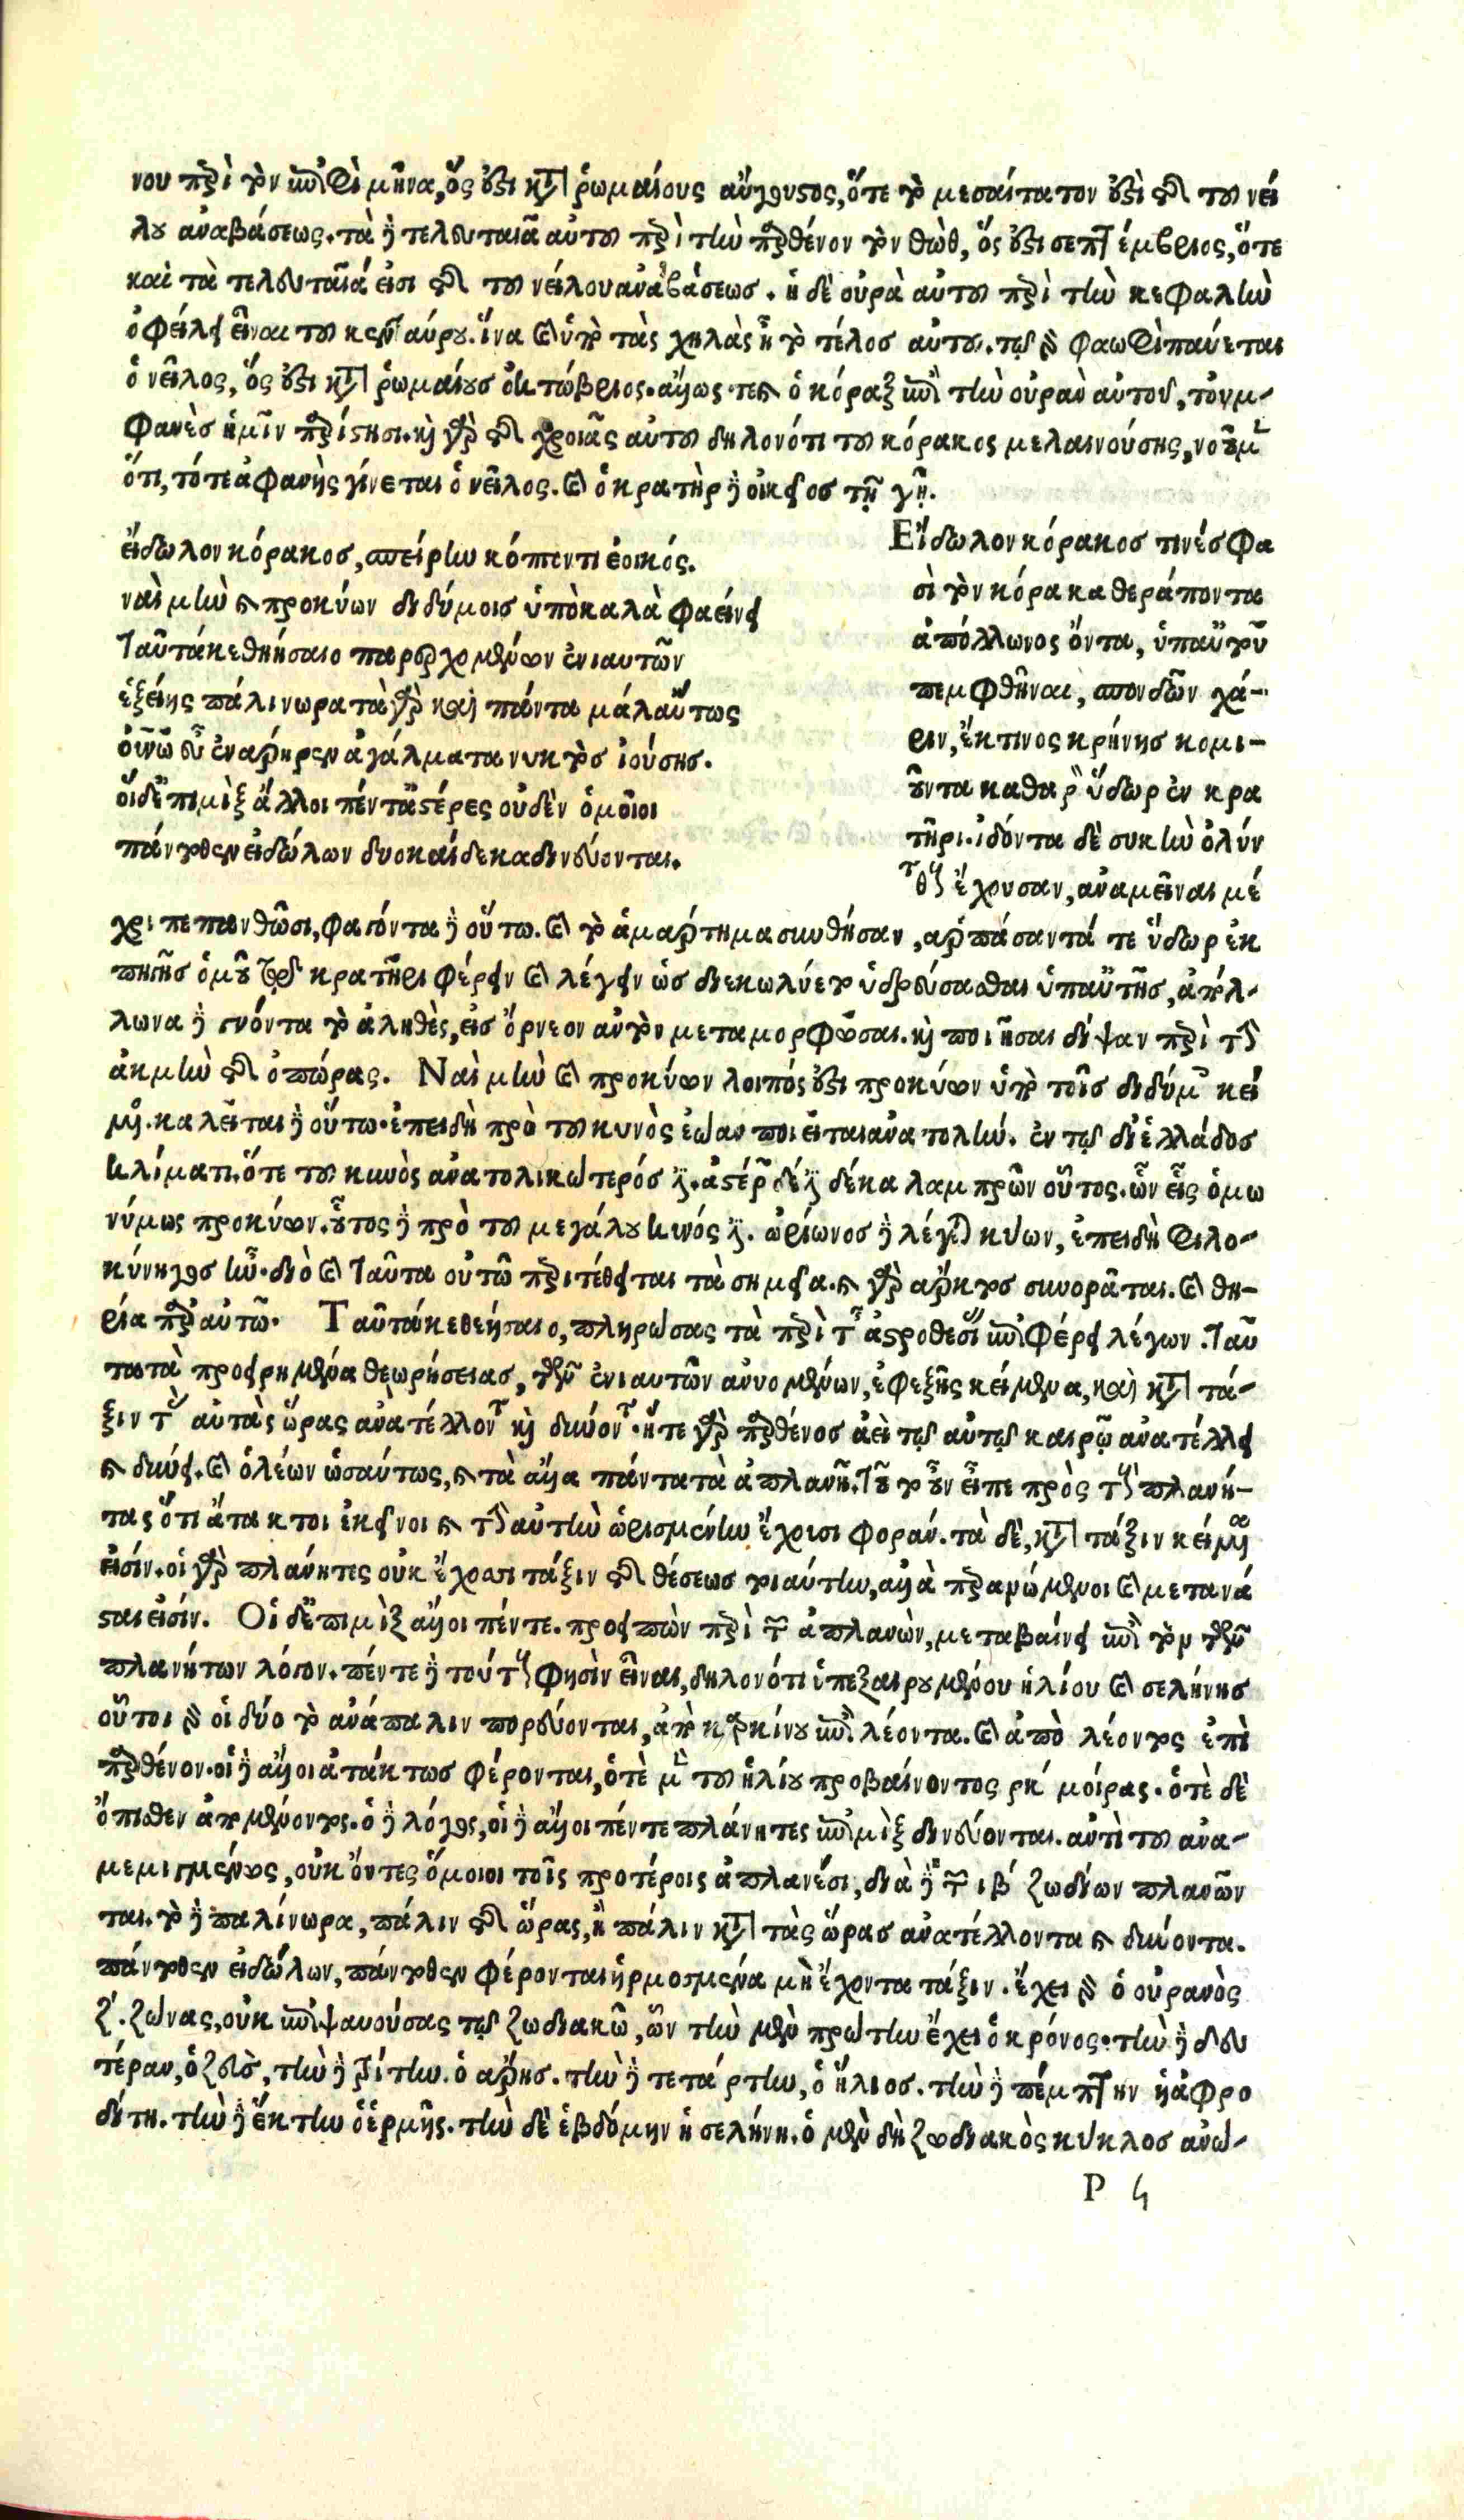 νου περὶ τὸν ἐπιφὶ μῆνα, ὅς ἐστι κατὰ ῥωμαίους αὔγουστος, ὅτε τὸ μεσαίτατον ἐστὶ τῆς τοῦ νεί
λου ἀναβάσεως. τὰ δὲ τελευταῖα αὐτοῦ περὶ τὴν παρθένον τὸν θὼθ, ὅς ἐστι σεπτέμβριος, ὅτε
καὶ τὰ τελευταῖά εἰσι τῆς τοῦ νείλου ἀναβάσεως. ἡ δὲ οὐρὰ αὐτοῦ περὶ τὴν κεφαλὴν
ὀφείλει εἶναι τοῦ κενταύρου. ἵνα καὶ ὑπὸ τὰς χηλὰς ᾖ τὸ τέλος αὐτοῦ. τῷ γὰρ φαωφὶ παύεται
ὁ νεῖλος, ὅς ἐστι κατὰ ῥωμαίους ὀκτώβριος. ἄλλως τε καὶ ὁ κόραξ ἐπὶ τὴν οὐρὰν αὐτοῦ, τὸ ἀμ-
φανὲς ἡμῖν παρίστησι. καὶ γὰρ τῆς χροιᾶς αὐτοῦ δηλονότι τοῦ κόρακος μελαινούσης, νοοῦμεν
ὅτι, τότε ἀφανὴς γίνεται ὁ νεῖλος. καὶ ὁ κρατὴρ δὲ οἰκεῖος τῇ γῇ.
εἴδωλον κόρακος, σπείρην κόπτοντι ἐοικός.
ναὶ μὴν καὶ προκύων διδύμοις ὑπὸ καλὰ φαείνει
Ταῦτά κε θηήσαιο παρερχομένων ἐνιαυτῶν
ἑξείης πάλινωρα τὰ γὰρ καὶ πάντα μάλ αὔτως
οὐρανῷ εὖ ἐναρηρεν ἀγάλματα νυκτὸς ἰούσης.
οἱ δ ἐπιμὶξ ἄλλοι πέντ ἀστέρες οὐδὲν ὁμοῖοι
πάντοθεν εἰδώλων δυοκαίδεκα δινεύονται.
Εἴδωλον κόρακος τινές φα
σὶ τὸν κόρακα θεράποντα
ἀπόλλωνος ὄντα, ὑπ αὐτοῦ
πεμφθῆναι, σπονδῶν χά-
ριν, ἔκ τινος κρήνης κομι-
οῦντα καθαρὸν ὕδωρ ἐν κρα
τῆρι. ἰδόντα δὲ συκῆν ὀλύν
θους ἔχουσαν, ἀναμεῖναι μέ
χρι πεπανθῶσι, φαγόντα δὲ οὕτω. καὶ τὸ ἁμάρτημα συνθήσαν, ἁρπάσαντά τε ὕδωρ ἐκ
πηγῆς ὁμοῦ τῷ κρατῆρι φέρειν καὶ λέγειν ὡς διεκωλύετο ὑδρεύσασθαι ὑπ αὐτῆς, ἀπόλ-
λωνα δὲ γνόντα τὸ ἀληθὲς, εἰς ὄρνεον αὐτὸν μεταμορφῶσαι. καὶ ποιῆσαι δίψαν περὶ τὴν
ἀκμὴν τῆς ὀπώρας. Ναὶ μὴν καὶ προκύων λοιπός ἐστι προκύων ὑπὸ τοῖς διδύμοις κεί
μενος. καλεῖται δὲ οὕτω. ἐπειδὴ πρὸ τοῦ κυνὸς ἑῴαν ποιεῖται ἀνατολήν. ἐν τῷ δι ἑλλάδος
κλίματι. ὅτε τοῦ κυνὸς ἀνατολικώτερός ἐστι. ἀστέρων δέ ἐστι δέκα λαμπρῶν οὗτος. ὧν εἷς ὁμω
νύμως προκύων. οὗτος δὲ πρὸ τοῦ μεγάλου κυνός ἐστι. ὠρίωνος δὲ λέγεται κύων, ἐπειδὴ φιλο-
κύνηγος ἦν. διὸ καὶ ταῦτα οὐτῶ περιτέθειται τὰ σημεῖα. καὶ γὰρ ἄρκτος συνορᾶται. καὶ θη-
ρία παρ αὐτῶ. Ταῦτά κε θεήσαιο, πληρώσας τὰ περὶ τῆς ἀστροθεσίας ἐπιφέρει λέγων. Ταῦ
τα τὰ προειρημένα θεωρήσειας, τῶν ἐνιαυτῶν ἀνυομένων, ἐφεξῆς κείμενα, καὶ κατὰ τά-
ξιν τὰς αὐτὰς ὥρας ἀνατέλλοντα καὶ δύνοντα. ἥτε γὰρ παρθένος ἀεὶ τῷ αὐτῷ καιρῷ ἀνατέλλει
καὶ δύνει. καὶ ὁ λέων ὡσαύτως, καὶ τὰ ἄλλα πάντα τὰ ἀπλανῆ. τοῦτο οὖν εἶπε πρὸς τοὺς πλανή-
τας ὅτι ἄτακτοι ἐκεῖνοι καὶ τὴν αὐτὴν ὡρισμένην ἔχουσι φοράν. τὰ δὲ, κατὰ τάξιν κείμενα
εἰσίν. οἱ γὰρ πλάνητες οὐκ ἔχουσι τάξιν τῆς θέσεως τοιαύτην, ἀλλὰ πλανώμενοι καὶ μετανά
σται εἰσίν. Οἱ δ ἐπιμὶξ ἄλλοι πέντε. προειπὼν περὶ τῶν ἀπλανῶν, μεταβαίνει ἐπὶ τὸν τῶν
πλανήτων λόγον. πέντε δὲ τούτους φησὶν εἶναι, δηλονότι ὑπεξαιρουμένου ἡλίου καὶ σελήνης
οὗτοι γὰρ οἱ δύο τὸ ἀνάπαλιν πορεύονται, ἀπὸ καρκίνου ἐπὶ λέοντα. καὶ ἀπὸ λέοντος ἐπὶ
παρθένον. οἱ δὲ ἄλλοι ἀτάκτως φέρονται, ὁτὲ μὲν τοῦ ἡλίου προβαίνοντος ρκ΄ μοίρας. ὁτὲ δὲ
ὄπισθεν ἀπομένοντος. ὁ δὲ λόγος, οἱ δὲ ἄλλοι πέντε πλάνητες ἐπιμὶξ δινεύονται. ἀντὶ τοῦ ἀνα-
μεμιγμένως, οὐκ ὄντες ὅμοιοι τοῖς προτέροις ἀπλανέσι, διὰ δὲ τῶν ιβ΄ ζωδίων πλανῶν
ται. τὸ δὲ παλίνωρα, πάλιν τῆς ὥρας, ἢ πάλιν κατὰ τὰς ὥρας ἀνατέλλοντα καὶ δύνοντα.
πάντοθεν εἰδώλων, πάντοθεν φέρονται ἡρμοσμένα μὴ ἔχοντα τάξιν. ἔχει γὰρ ὁ οὐρανὸς
ζ΄. ζώνας, οὐκ ἐπιψαυούσας τῷ ζωδιακῶ, ὧν τὴν μὲν πρώτην ἔχει ὁ κρόνος. τὴν δὲ δευ
τέραν, ὁ ζεὺς, τὴν δὲ τρίτην. ὁ ἄρης. τὴν δὲ τετάρτην, ὁ ἥλιος. τὴν δὲ πέμπτην ἡ ἀφρο
δίτη. τὴν δὲ ἕκτην ὁ ἑρμῆς. τὴν δὲ ἑβδόμην ἡ σελήνη. ὁ μὲν δὴ ζωδιακὸς κύκλος ἀνώ-
P 4